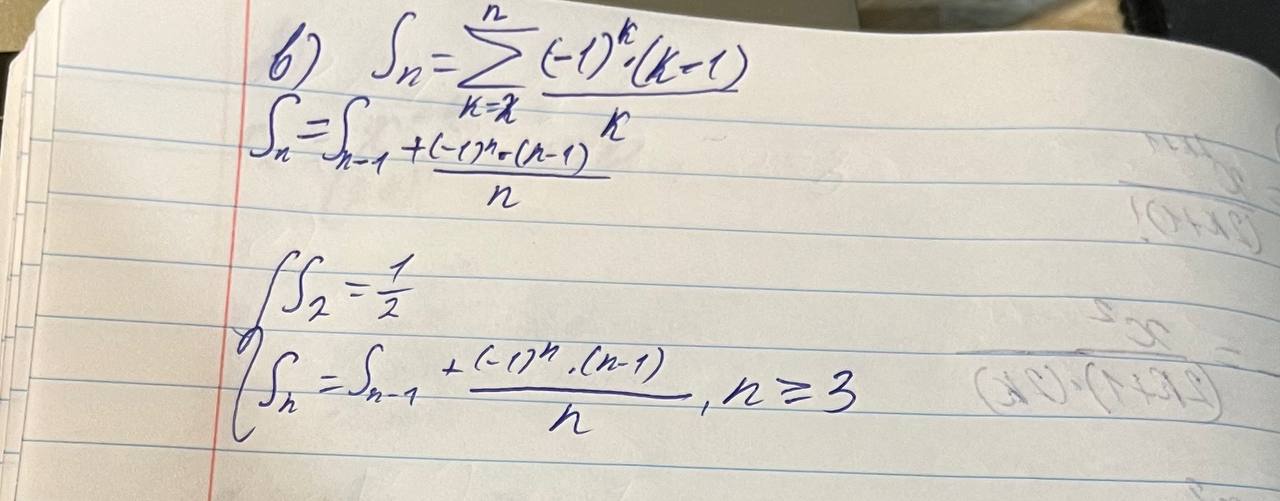 в) Sₙ = ∑ₖ₌₂ⁿ (-1)ᵏ·(k-1) / k
Sₙ = Sₙ₋₁ + (-1)ⁿ·(n-1) / n
{ S₂ = 1/2
Sₙ = Sₙ₋₁ + (-1)ⁿ·(n-1) / n, n ≥ 3